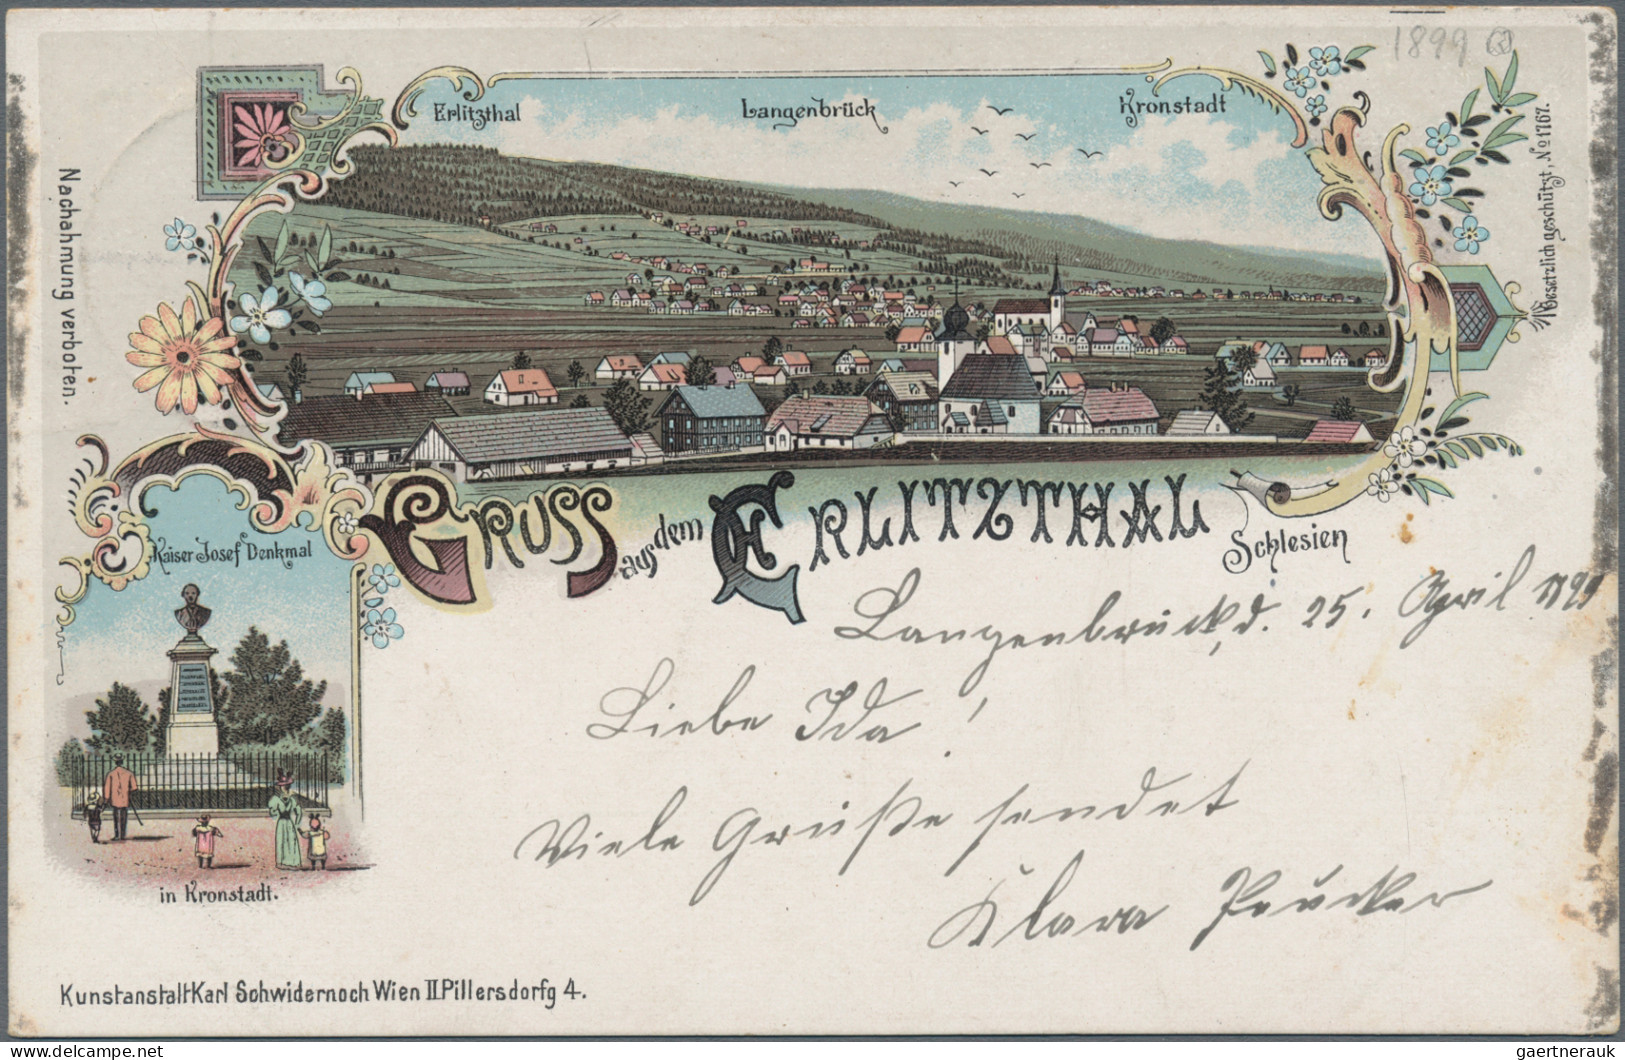 1899
Erlitzthal Langenbrück Kronstadt
Nachahmung verboten.
Gesetzlich geschützt, No 1767.
Gruss aus dem Erlitzthal
Schlesien
Kaiser Josef Denkmal
in Kronstadt.
Langenbrück, d. 25. April 1899
Liebe Ida!
Viele Grüße sendet
Klara Peucker
Kunstanstalt Karl Schwidernoch Wien II. Pillersdorfg 4.
delcampe.net
gaertnerauk